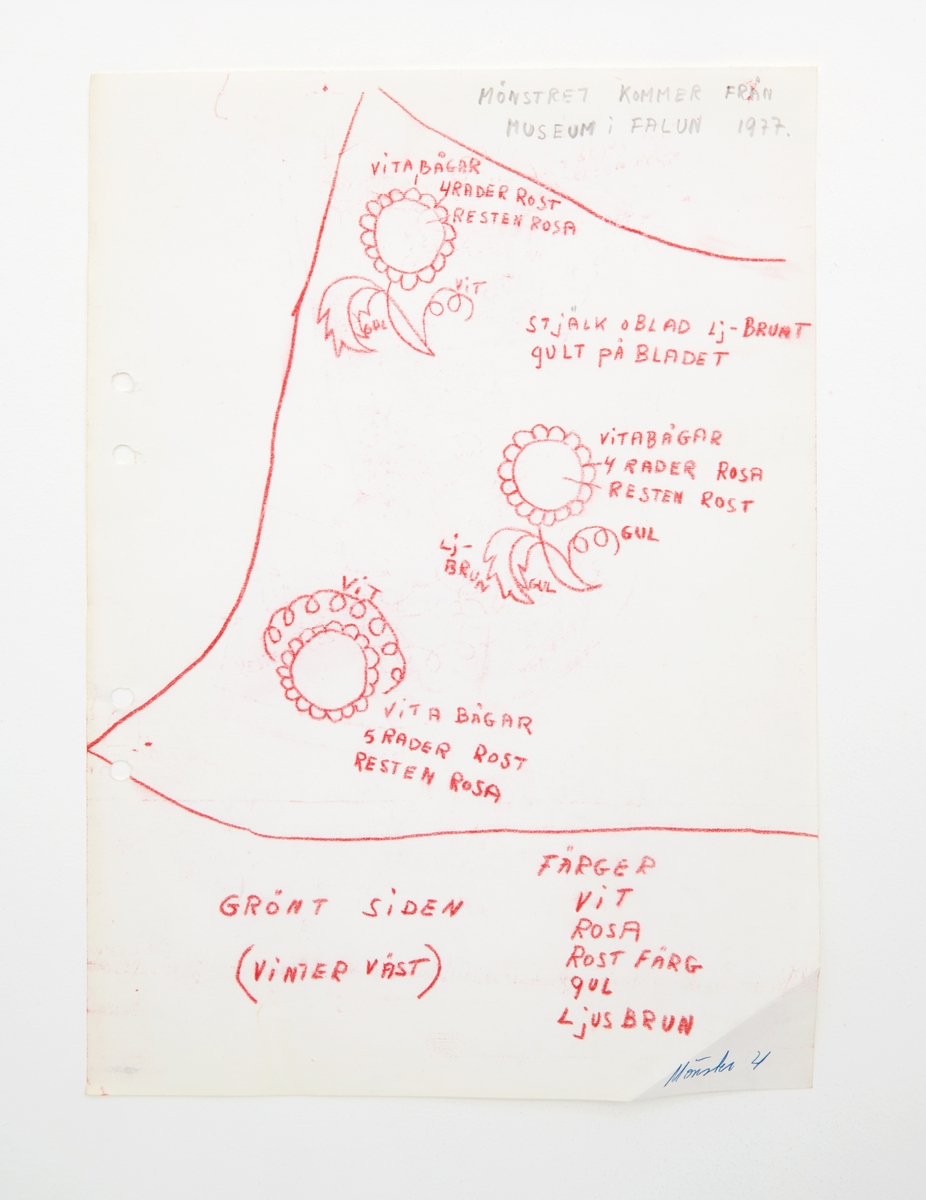 MÖNSTRET KOMMER FRÅN
MUSEUM i FALUN 1977.
ViTA BÅGAR
4 RADER ROST
RESTEN ROSA
ViT
GUL
STJÄLK o BLAD Lj-BRUNT
gULT på BLADET
ViTABÅGAR
4 RADER ROSA
RESTEN ROST
GUL
Lj-
BRUN
GUL
ViT
ViTA BÅGAR
5 RADER ROST
RESTEN ROSA
FÄRGER
ViT
ROSA
ROST FÄRG
gUL
LjUS BRUN
GRÖNT SiDEN
(ViNTER VÄST)
Mönster 4